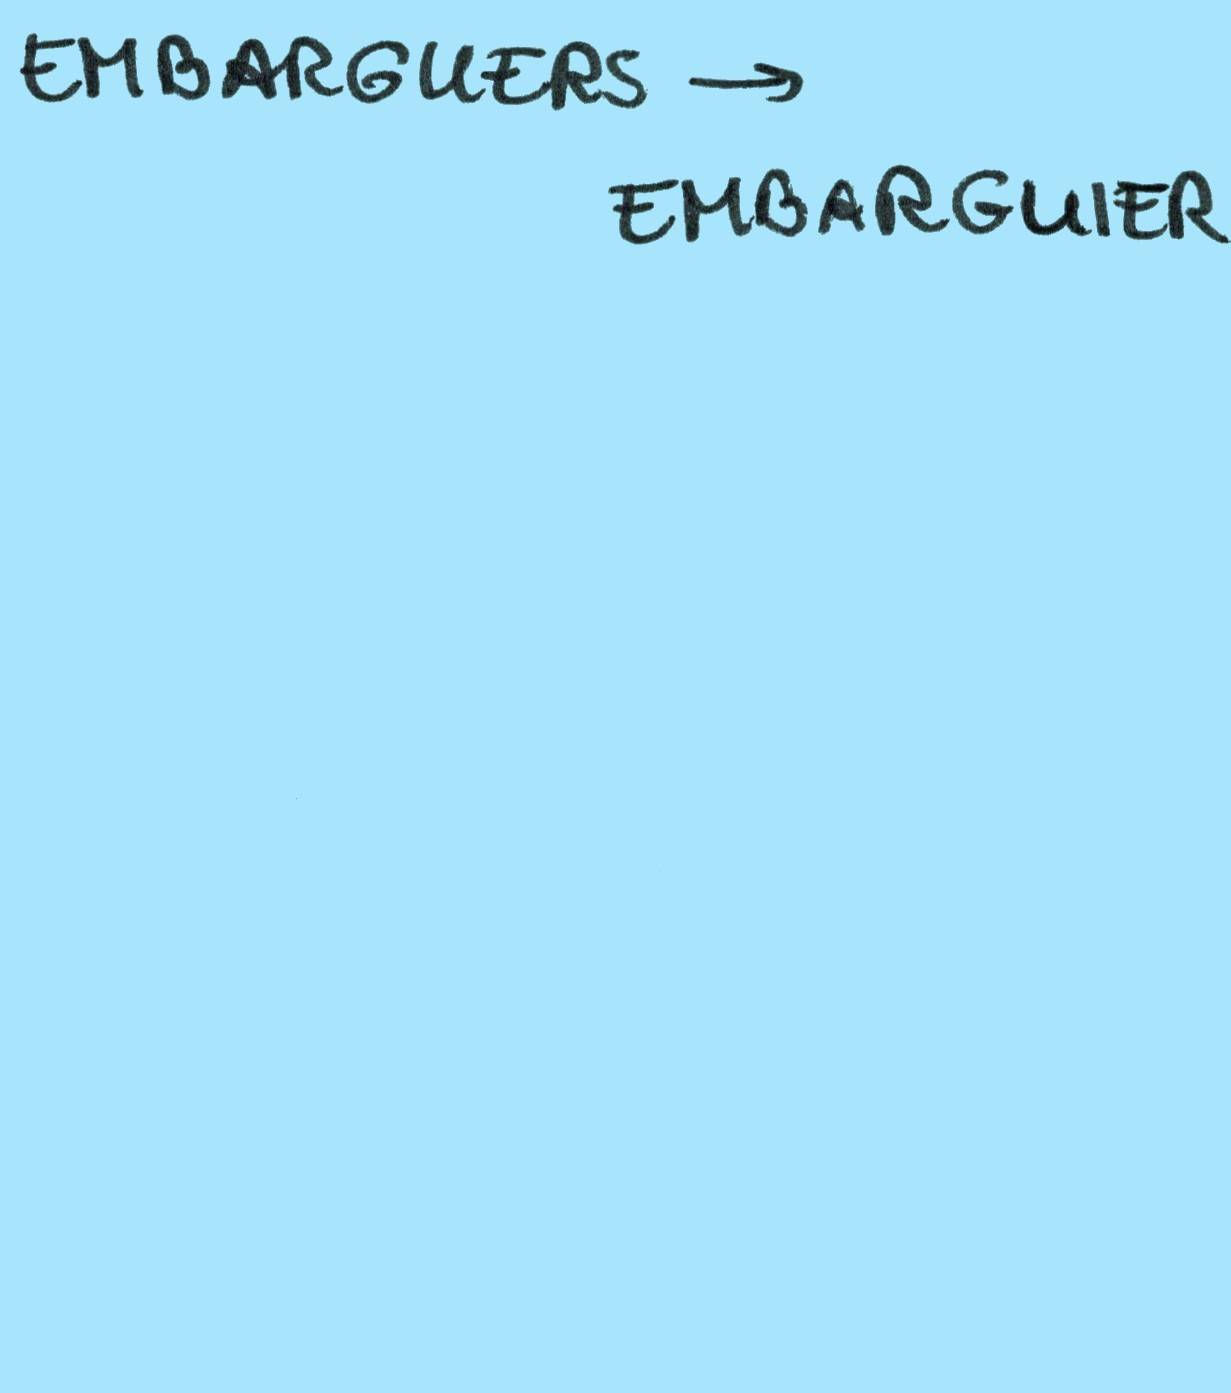 EMBARGUERS →
EMBARGUIER